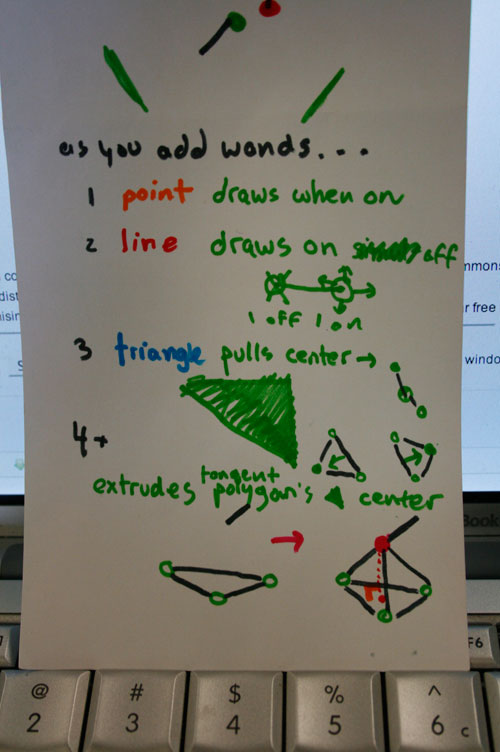 as you add wands...
1 point draws when on
2 line draws on off
1 off 1 on
3 triangle pulls center →
4+
extrudes tangent polygon's center
co
dist
isin
S
mmons
r free
windo
Book
F6
@ # $ % ^
2 3 4 5 6 c